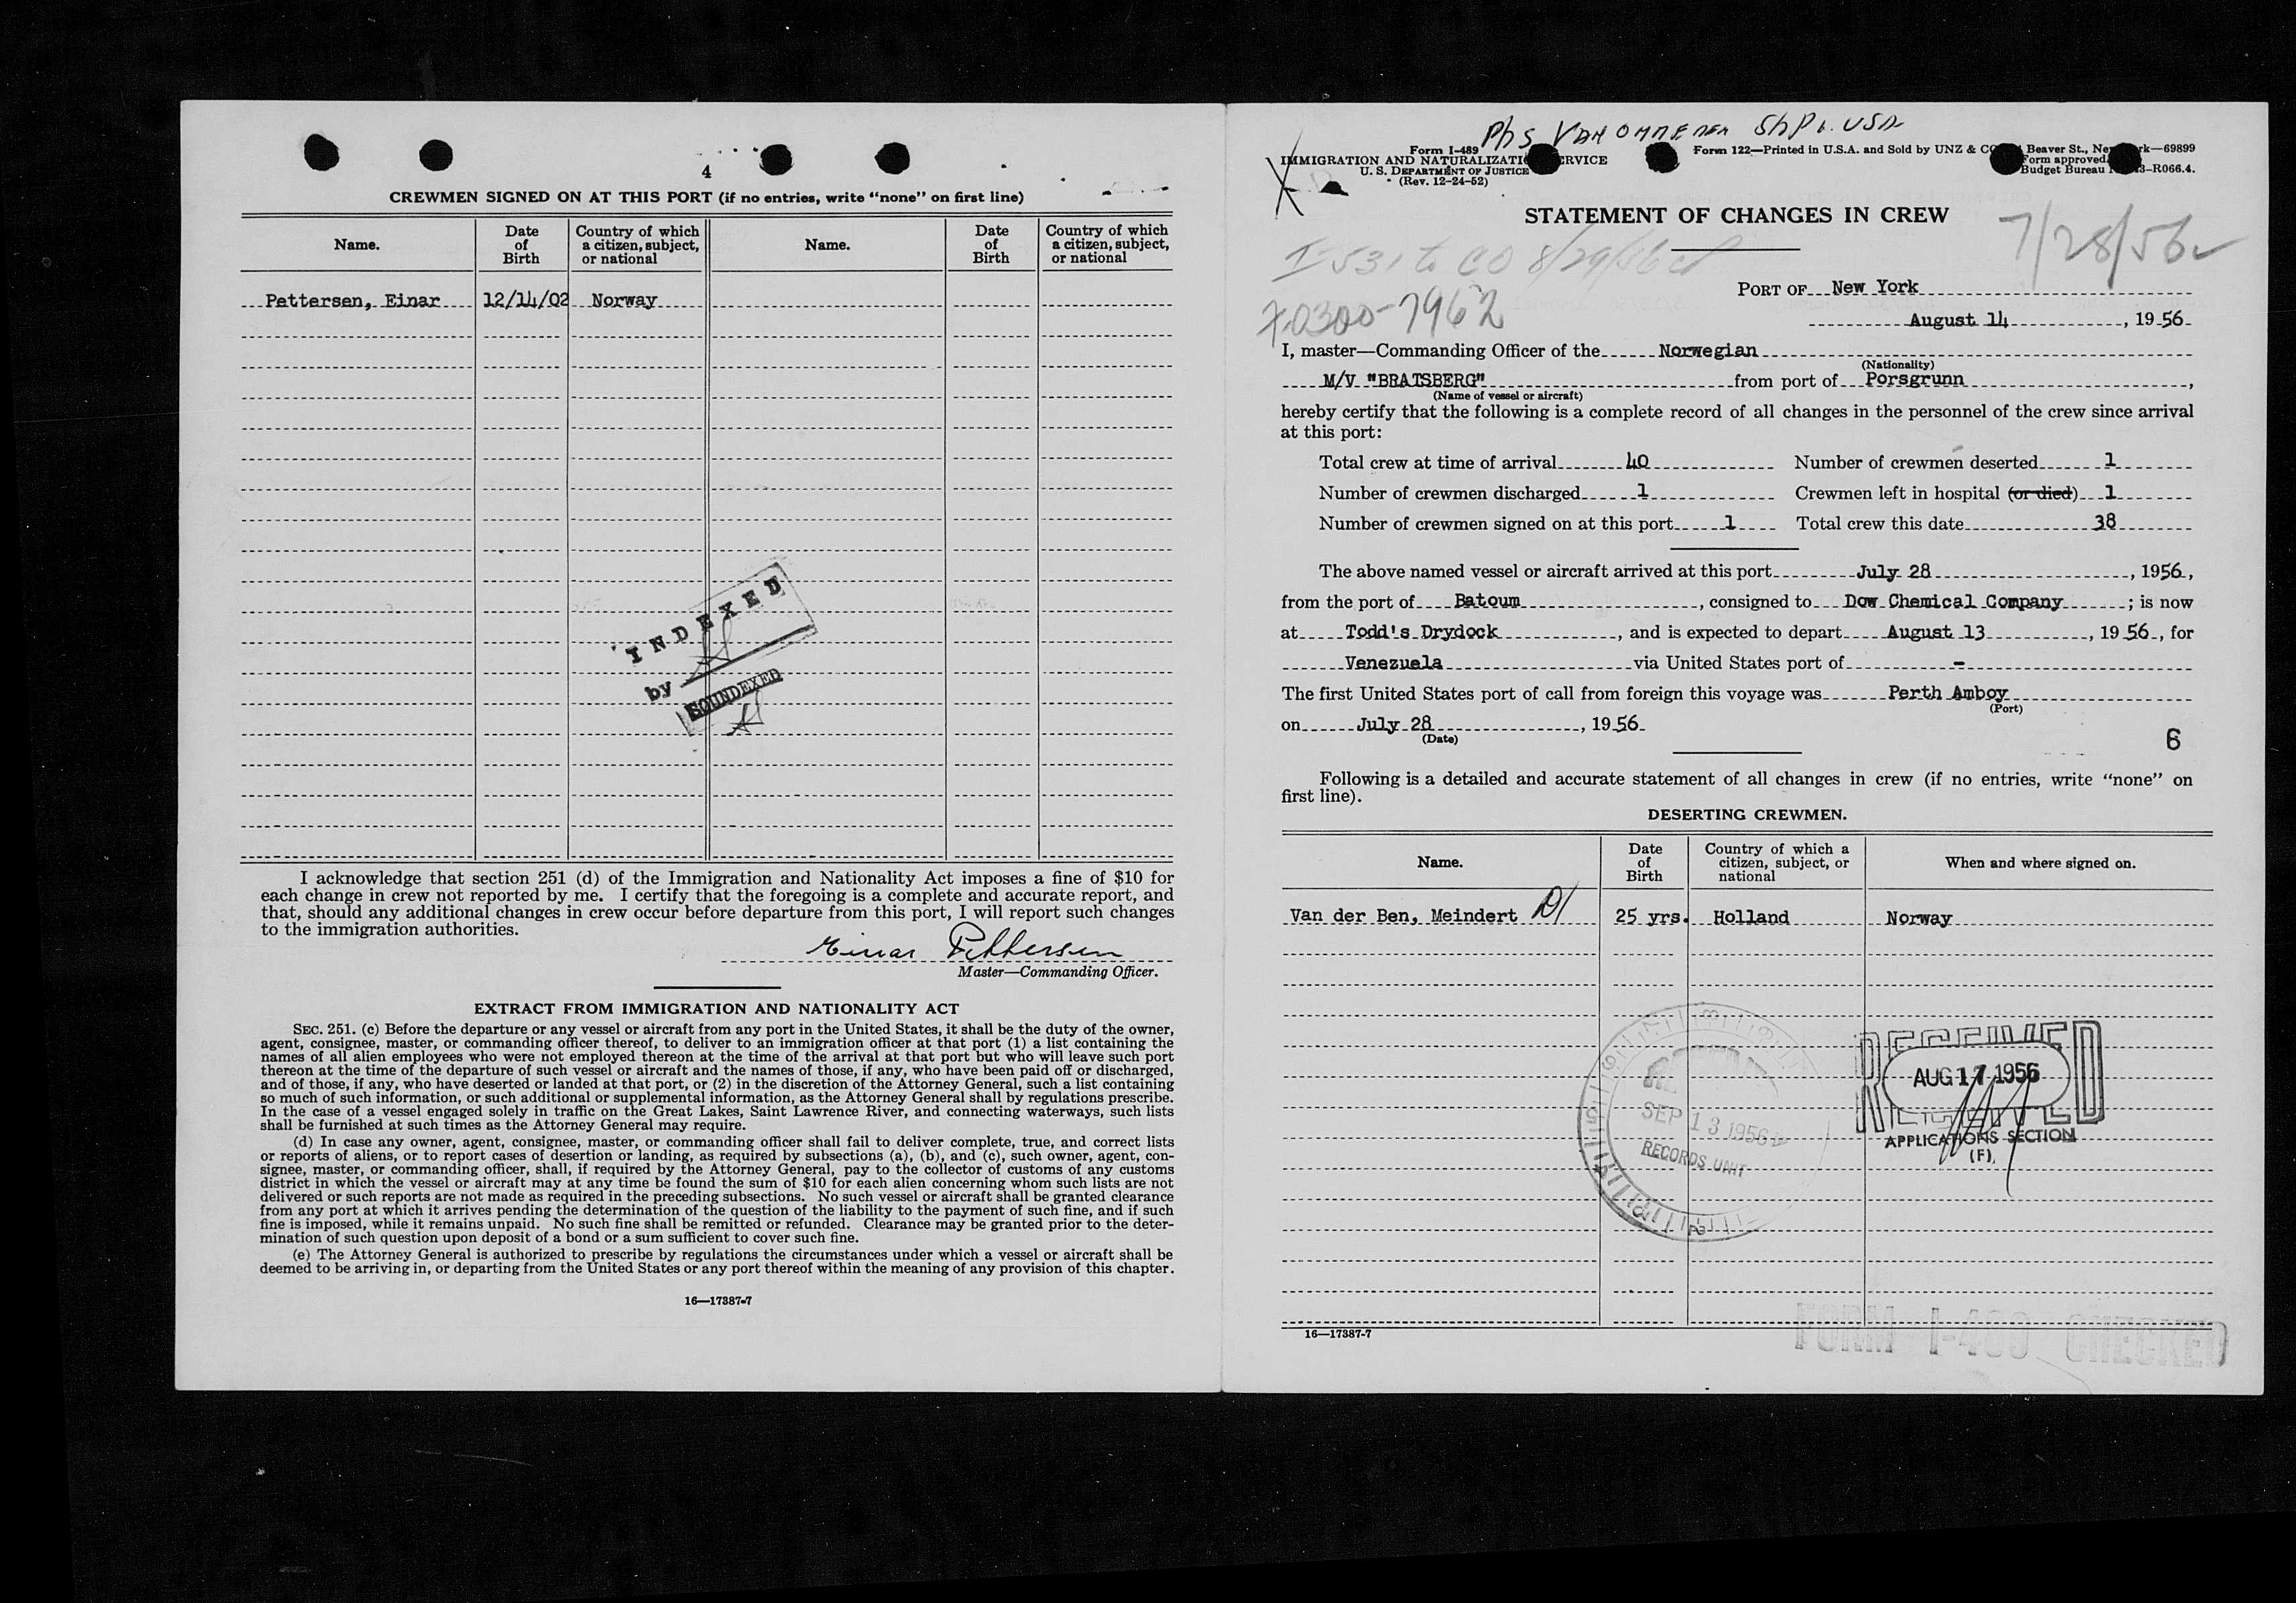 4
CREWMEN SIGNED ON AT THIS PORT (if no entries, write "none" on first line)
Name.
Date
of
Birth
Country of which
a citizen, subject,
or national
Name.
Date
of
Birth
Country of which
a citizen, subject,
or national
Pettersen, Einar 12/14/02 Norway
INDEXED
by
SOUNDEXED
I acknowledge that section 251 (d) of the Immigration and Nationality Act imposes a fine of $10 for
each change in crew not reported by me. I certify that the foregoing is a complete and accurate report, and
that, should any additional changes in crew occur before departure from this port, I will report such changes
to the immigration authorities.
Einar Pettersen
Master—Commanding Officer.
EXTRACT FROM IMMIGRATION AND NATIONALITY ACT
SEC. 251. (c) Before the departure or any vessel or aircraft from any port in the United States, it shall be the duty of the owner,
agent, consignee, master, or commanding officer thereof, to deliver to an immigration officer at that port (1) a list containing the
names of all alien employees who were not employed thereon at the time of the arrival at that port but who will leave such port
thereon at the time of the departure of such vessel or aircraft and the names of those, if any, who have been paid off or discharged,
and of those, if any, who have deserted or landed at that port, or (2) in the discretion of the Attorney General, such a list containing
so much of such information, or such additional or supplemental information, as the Attorney General shall by regulations prescribe.
In the case of a vessel engaged solely in traffic on the Great Lakes, Saint Lawrence River, and connecting waterways, such lists
shall be furnished at such times as the Attorney General may require.
(d) In case any owner, agent, consignee, master, or commanding officer shall fail to deliver complete, true, and correct lists
or reports of aliens, or to report cases of desertion or landing, as required by subsections (a), (b), and (c), such owner, agent, con-
signee, master, or commanding officer, shall, if required by the Attorney General, pay to the collector of customs of any customs
district in which the vessel or aircraft may at any time be found the sum of $10 for each alien concerning whom such lists are not
delivered or such reports are not made as required in the preceding subsections. No such vessel or aircraft shall be granted clearance
from any port at which it arrives pending the determination of the question of the liability to the payment of such fine, and if such
fine is imposed, while it remains unpaid. No such fine shall be remitted or refunded. Clearance may be granted prior to the deter-
mination of such question upon deposit of a bond or a sum sufficient to cover such fine.
(e) The Attorney General is authorized to prescribe by regulations the circumstances under which a vessel or aircraft shall be
deemed to be arriving in, or departing from the United States or any port thereof within the meaning of any provision of this chapter.
16—17387-7
Phs Van Ommeren Shpg. USA
Form I-489
IMMIGRATION AND NATURALIZATI RVICE
U. S. DEPARTMENT OF JUSTICE
(Rev. 12-24-52)
Form 122—Printed in U.S.A. and Sold by UNZ & CO Beaver St., Ne rk—69899
Form approved
Budget Bureau 3-R066.4.
STATEMENT OF CHANGES IN CREW
7/28/56
I-531 to CO 8/29/56
0300-7962
PORT OF New York
August 14, 1956
I, master—Commanding Officer of the Norwegian
(Nationality)
M/V "BRATSBERG" from port of Porsgrunn,
(Name of vessel or aircraft)
hereby certify that the following is a complete record of all changes in the personnel of the crew since arrival
at this port:
Total crew at time of arrival 40 Number of crewmen deserted 1
Number of crewmen discharged 1 Crewmen left in hospital (or died) 1
Number of crewmen signed on at this port 1 Total crew this date 38
The above named vessel or aircraft arrived at this port July 28, 1956,
from the port of Batoum, consigned to Dow Chemical Company; is now
at Todd's Drydock, and is expected to depart August 13, 1956, for
Venezuela via United States port of -
The first United States port of call from foreign this voyage was Perth Amboy
(Port)
on July 28, 1956
(Date)
6
Following is a detailed and accurate statement of all changes in crew (if no entries, write "none" on
first line).
DESERTING CREWMEN.
Name.
Date
of
Birth
Country of which a
citizen, subject, or
national
When and where signed on.
Van der Ben, Meindert 25 yrs. Holland Norway
SEP 13 1956
RECORDS UNIT
RECEIVED
AUG 17 1956
APPLICATIONS SECTION
(F)
16—17387-7
FORM I-489 CHECKED